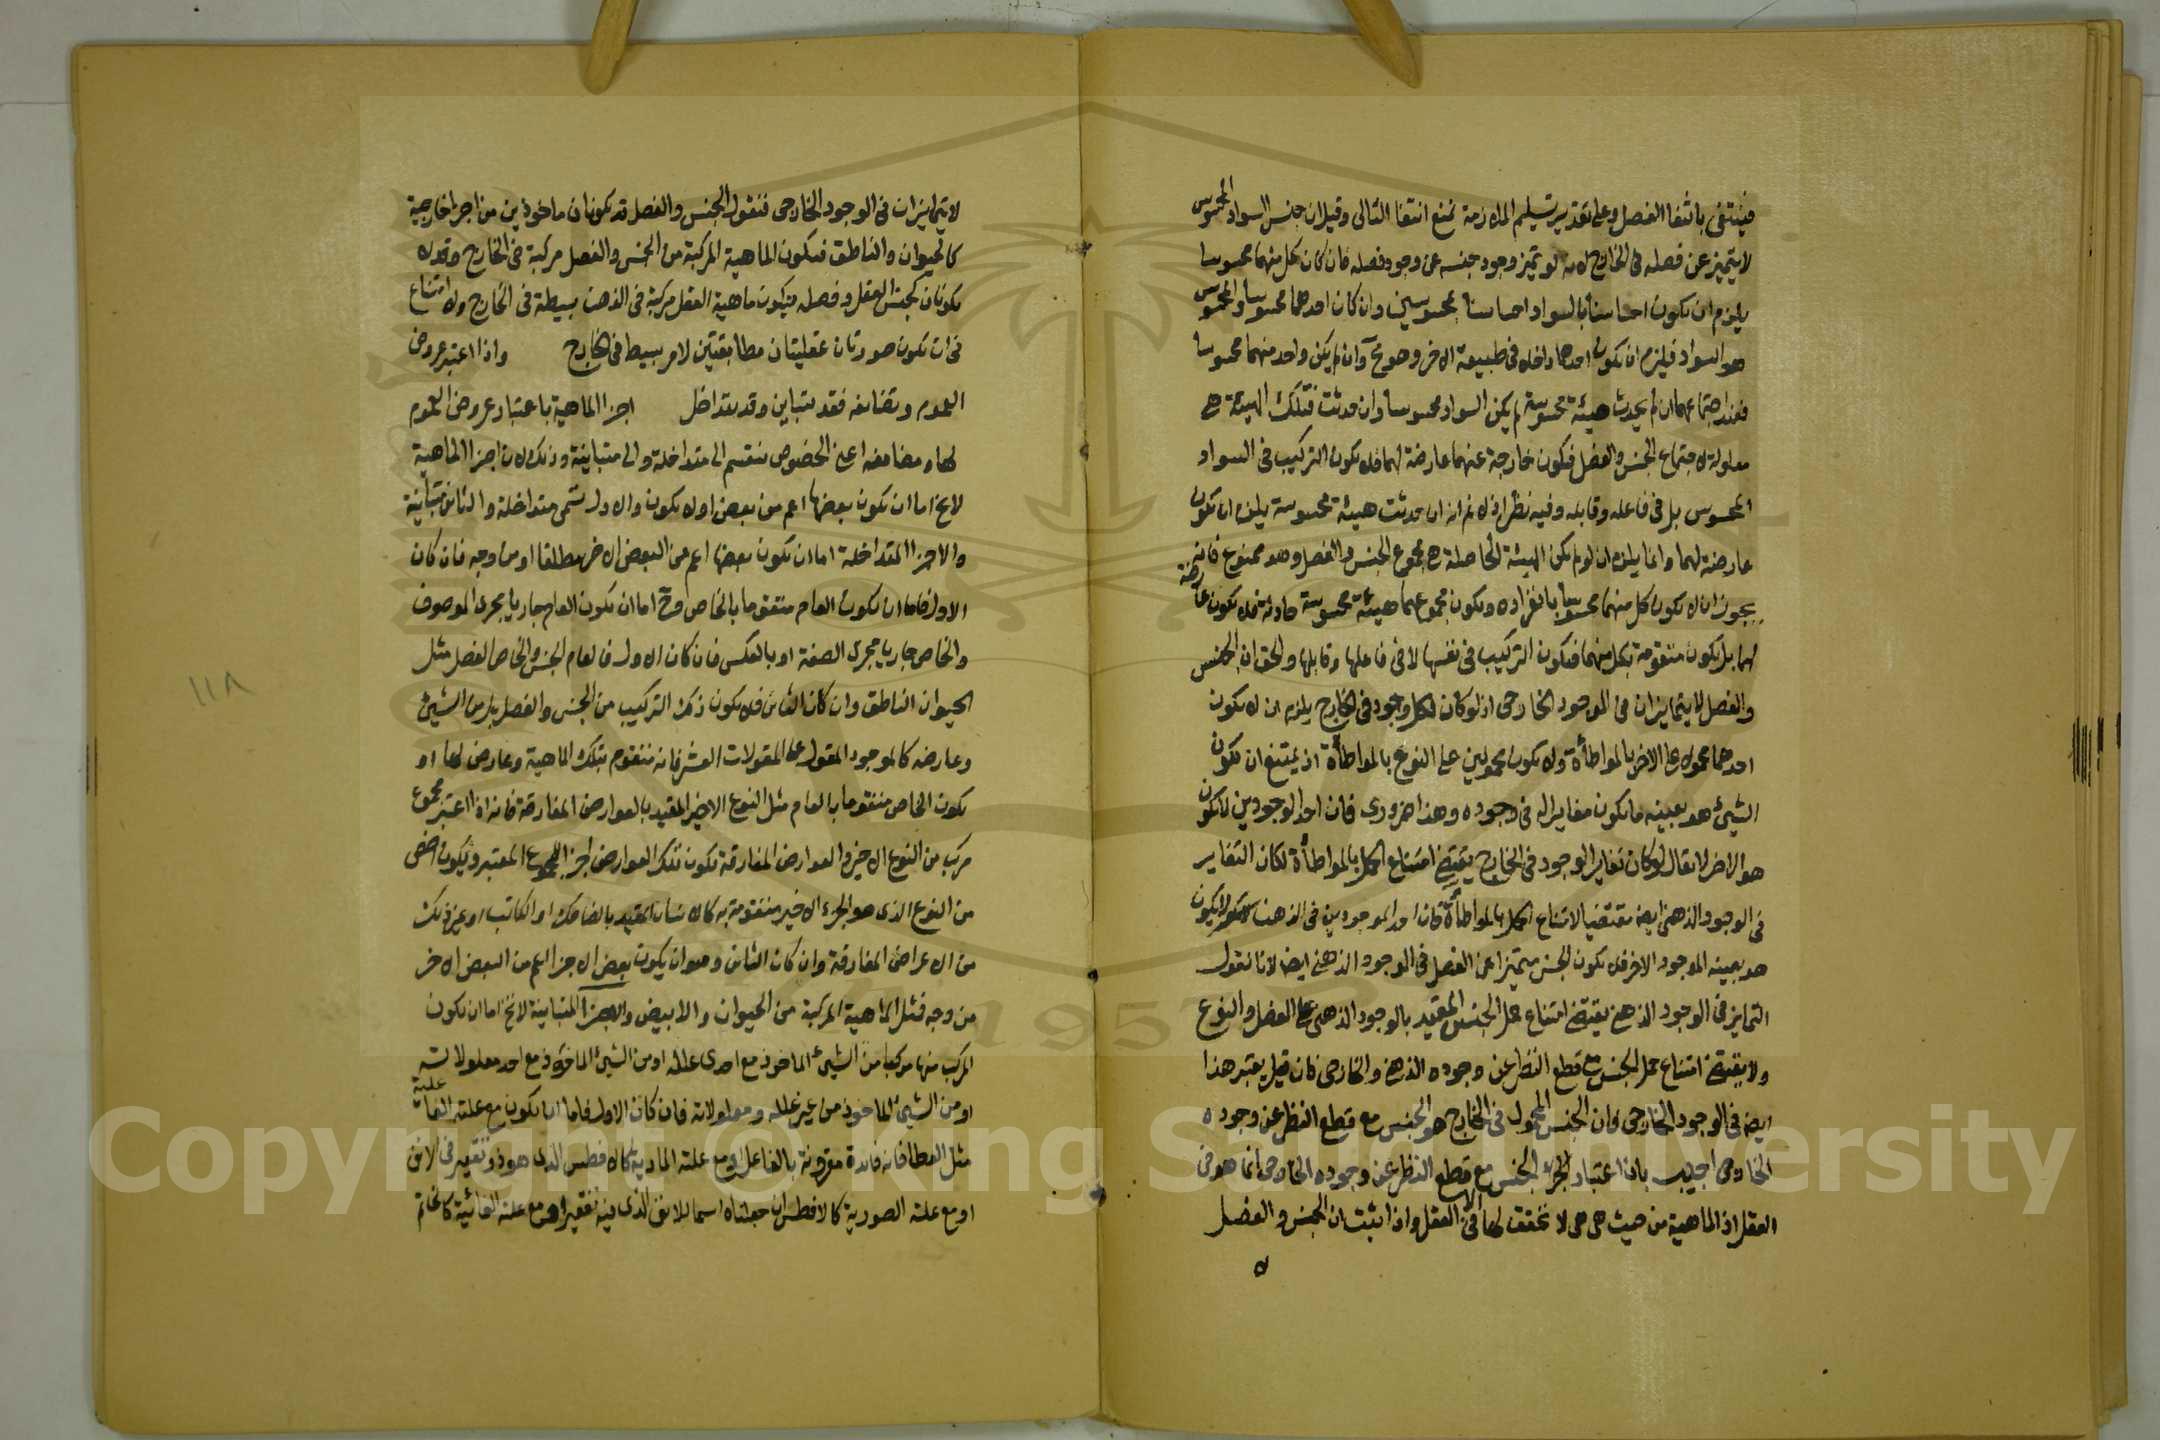 فينتفى بانتفا الفصل وعلى تقدير تسليم الملازمة نمنع انتفا التالى وقيل ان جنس السواد المحسوس
لا يتميز عن فصله فى الخارج لانه لو تميز وجود جنسه عن وجود فصله فان كان كل منهما محسوسا
يلزم ان يكون احساسنا بالسواد احساسنا بمحسوسين وان كان احدهما محسوسا والمحسوس
هو السواد فيلزم ان يكون احدهما داخلا فى طبيعة الاخر وهو مح وان لم يكن واحد منهما محسوسا
فعند اجتماعهما ان لم يحدث هيئة محسوسة لم يكن السواد محسوسا وان حدثت فتلك الهيئة هى
معلولة لاجتماع الجنس والفصل فتكون خارجة عنهما عارضة لهما فلا يكون التركيب فى السواد
المحسوس بل فى فاعله وقابله وفيه نظر اذ لا نم انه ان حدثت هيئة محسوسة يلزم ان تكون
عارضة لهما وانما يلزم ان لو لم تكن الهيئة الحاصلة هى مجموع الجنس والفصل وهو ممنوع فانه
يجوز ان لا يكون كل منهما محسوسا بانفراده ويكون مجموعهما هيئة محسوسة حادثة فلا تكون عارضة
لهما بل تكون متقومة بكل منهما فيكون التركيب فى نفسها لا فى فاعلها وقابلها والحق ان الجنس
والفصل لا يتمايزان فى الوجود الخارجى اذ لو كان لكل وجود فى الخارج يلزم ان لا يكون
احدهما محمولا على الاخر بالمواطأة ولا يكون محمولين على النوع بالمواطأة اذ يمتنع ان يكون
الشيئ هو بعينه ما يكون مغايرا له فى وجوده وهذا ضرورى فان احد الوجودين لا يكون
هو الاخر لا يقال لو كان تغاير الوجود فى الخارج يقتضى امتناع الحمل بالمواطأة لكان التغاير
فى الوجود الذهنى ايضا مقتضيا لامتناع الحمل بالمواطأة فان احد الموجودين فى الذهن لا يكون
هو بعينه الموجود الاخر فلا يكون الجنس متميزا عن الفصل فى الوجود الذهنى ايضا لانا نقول
التمايز فى الوجود الذهنى يقتضى امتناع حمل الجنس المقيد بالوجود الذهنى على الفصل والنوع
ولا يقتضى امتناع حمل الجنس مع قطع النظر عن وجوده الذهنى والخارجى فان قيل يعتبر هذا
ايضا فى الوجود الخارجى فان الجنس المحمول فى الخارج هو الجنس مع قطع النظر عن وجوده
الخارجى اجيب بان اعتبار الجنس مع قطع النظر عن وجوده الخارجى انما هو فى
العقل اذ الماهية من حيث هى هى لا تحقق لها الا فى العقل واذا ثبت ان الجنس والفصل
لا
لا يتمايزان فى الوجود الخارجى فنقول الجنس والفصل قد يكونان ماخوذين من اجزا خارجية
كالحيوان والناطق فتكون الماهية المركبة من الجنس والفصل مركبة فى الخارج وقد لا
يكونان كجنس العقل وفصله فيكون ماهية العقل مركبة فى الذهن بسيطة فى الخارج ولا امتناع
فى ان تكون صورتان عقليتان مطابقتين لامر بسيط فى الخارج واذا اعتبر عروض
العموم ومضايفه فقد تتباين وقد تتداخل اجزا الماهية باعتبار عروض العموم
لها ومضايفه اعنى الخصوص تنقسم الى متداخلة والى متباينة وذلك لان اجزا الماهية
لا يخ اما ان تكون بعضها اعم من بعض او لا يكون والاول تسمى متداخلة والثانى متباينة
والاجزا المتداخلة اما ان تكون بعضها اعم من البعض الاخر مطلقا او من وجه فان كان
الاول فاما ان يكون العام متقوما بالخاص اوح اما ان يكون العام جاريا مجرى الموصوف
والخاص جاريا مجرى الصفة او بالعكس فان كان الاول فالعام الجنس والخاص الفصل مثل
الحيوان الناطق وان كان الثانى فلا يكون ذلك التركيب من الجنس والفصل بل من الشيئ
وعارضه كالموجود المقول على المقولات العشر فانه متقوم بتلك الماهية وعارض لها او
يكون الخاص متقوما بالعام مثل النوع الاخير المقيد بالعوارض المفارقة فانه اذا اعتبر مجموع
مركب من النوع الاخير والعوارض المفارقة تكون تلك العوارض اجزا المجموع المعتبر وتكون اخص
من النوع الذى هو الجزء الاخير متقومة به كالانسان المقيد بالضاحك او الكاتب او غير ذلك
من الاعراض المفارقة وان كان الثانى وهو ان يكون بعض الاجزا اعم من البعض الاخر
من وجه فمثل الماهية المركبة من الحيوان والابيض والاجزا المتباينة لا يخ اما ان يكون
المركب منها مركبا من الشيئ الماخوذ مع احدى علله او من الشيئ الماخوذ مع احد معلولاته
او من الشيئ الماخوذ من غير علله ومعلولاته فان كان الاول فاما ان يكون مع علته الفاعلية
مثل العطا فانه فائدة مقرونة بالفاعل او مع علته المادية كالافطس الذى هو ذو تقعير فى الانف
او مع علته الصورية كالافطس اذا جعلناه اسما للانف الذى فيه تقعير او مع علته الغائية كالخاتم
١١٨
Copyright © King Saud University
1957